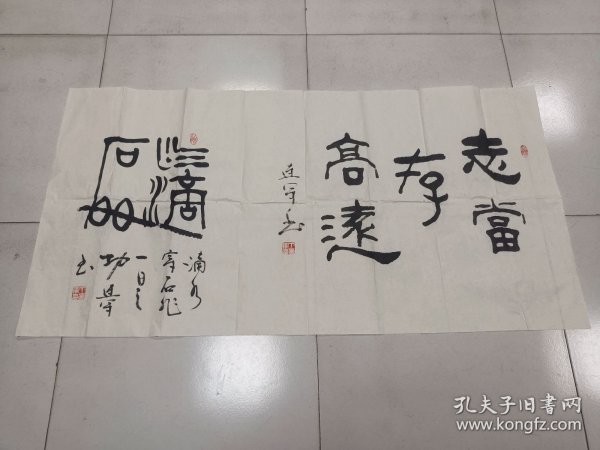 志當
存
高遠
連军书
水滴
石
滴水
穿石非
一日之
功 連军
书
孔夫子旧书网
www.kongfz.com